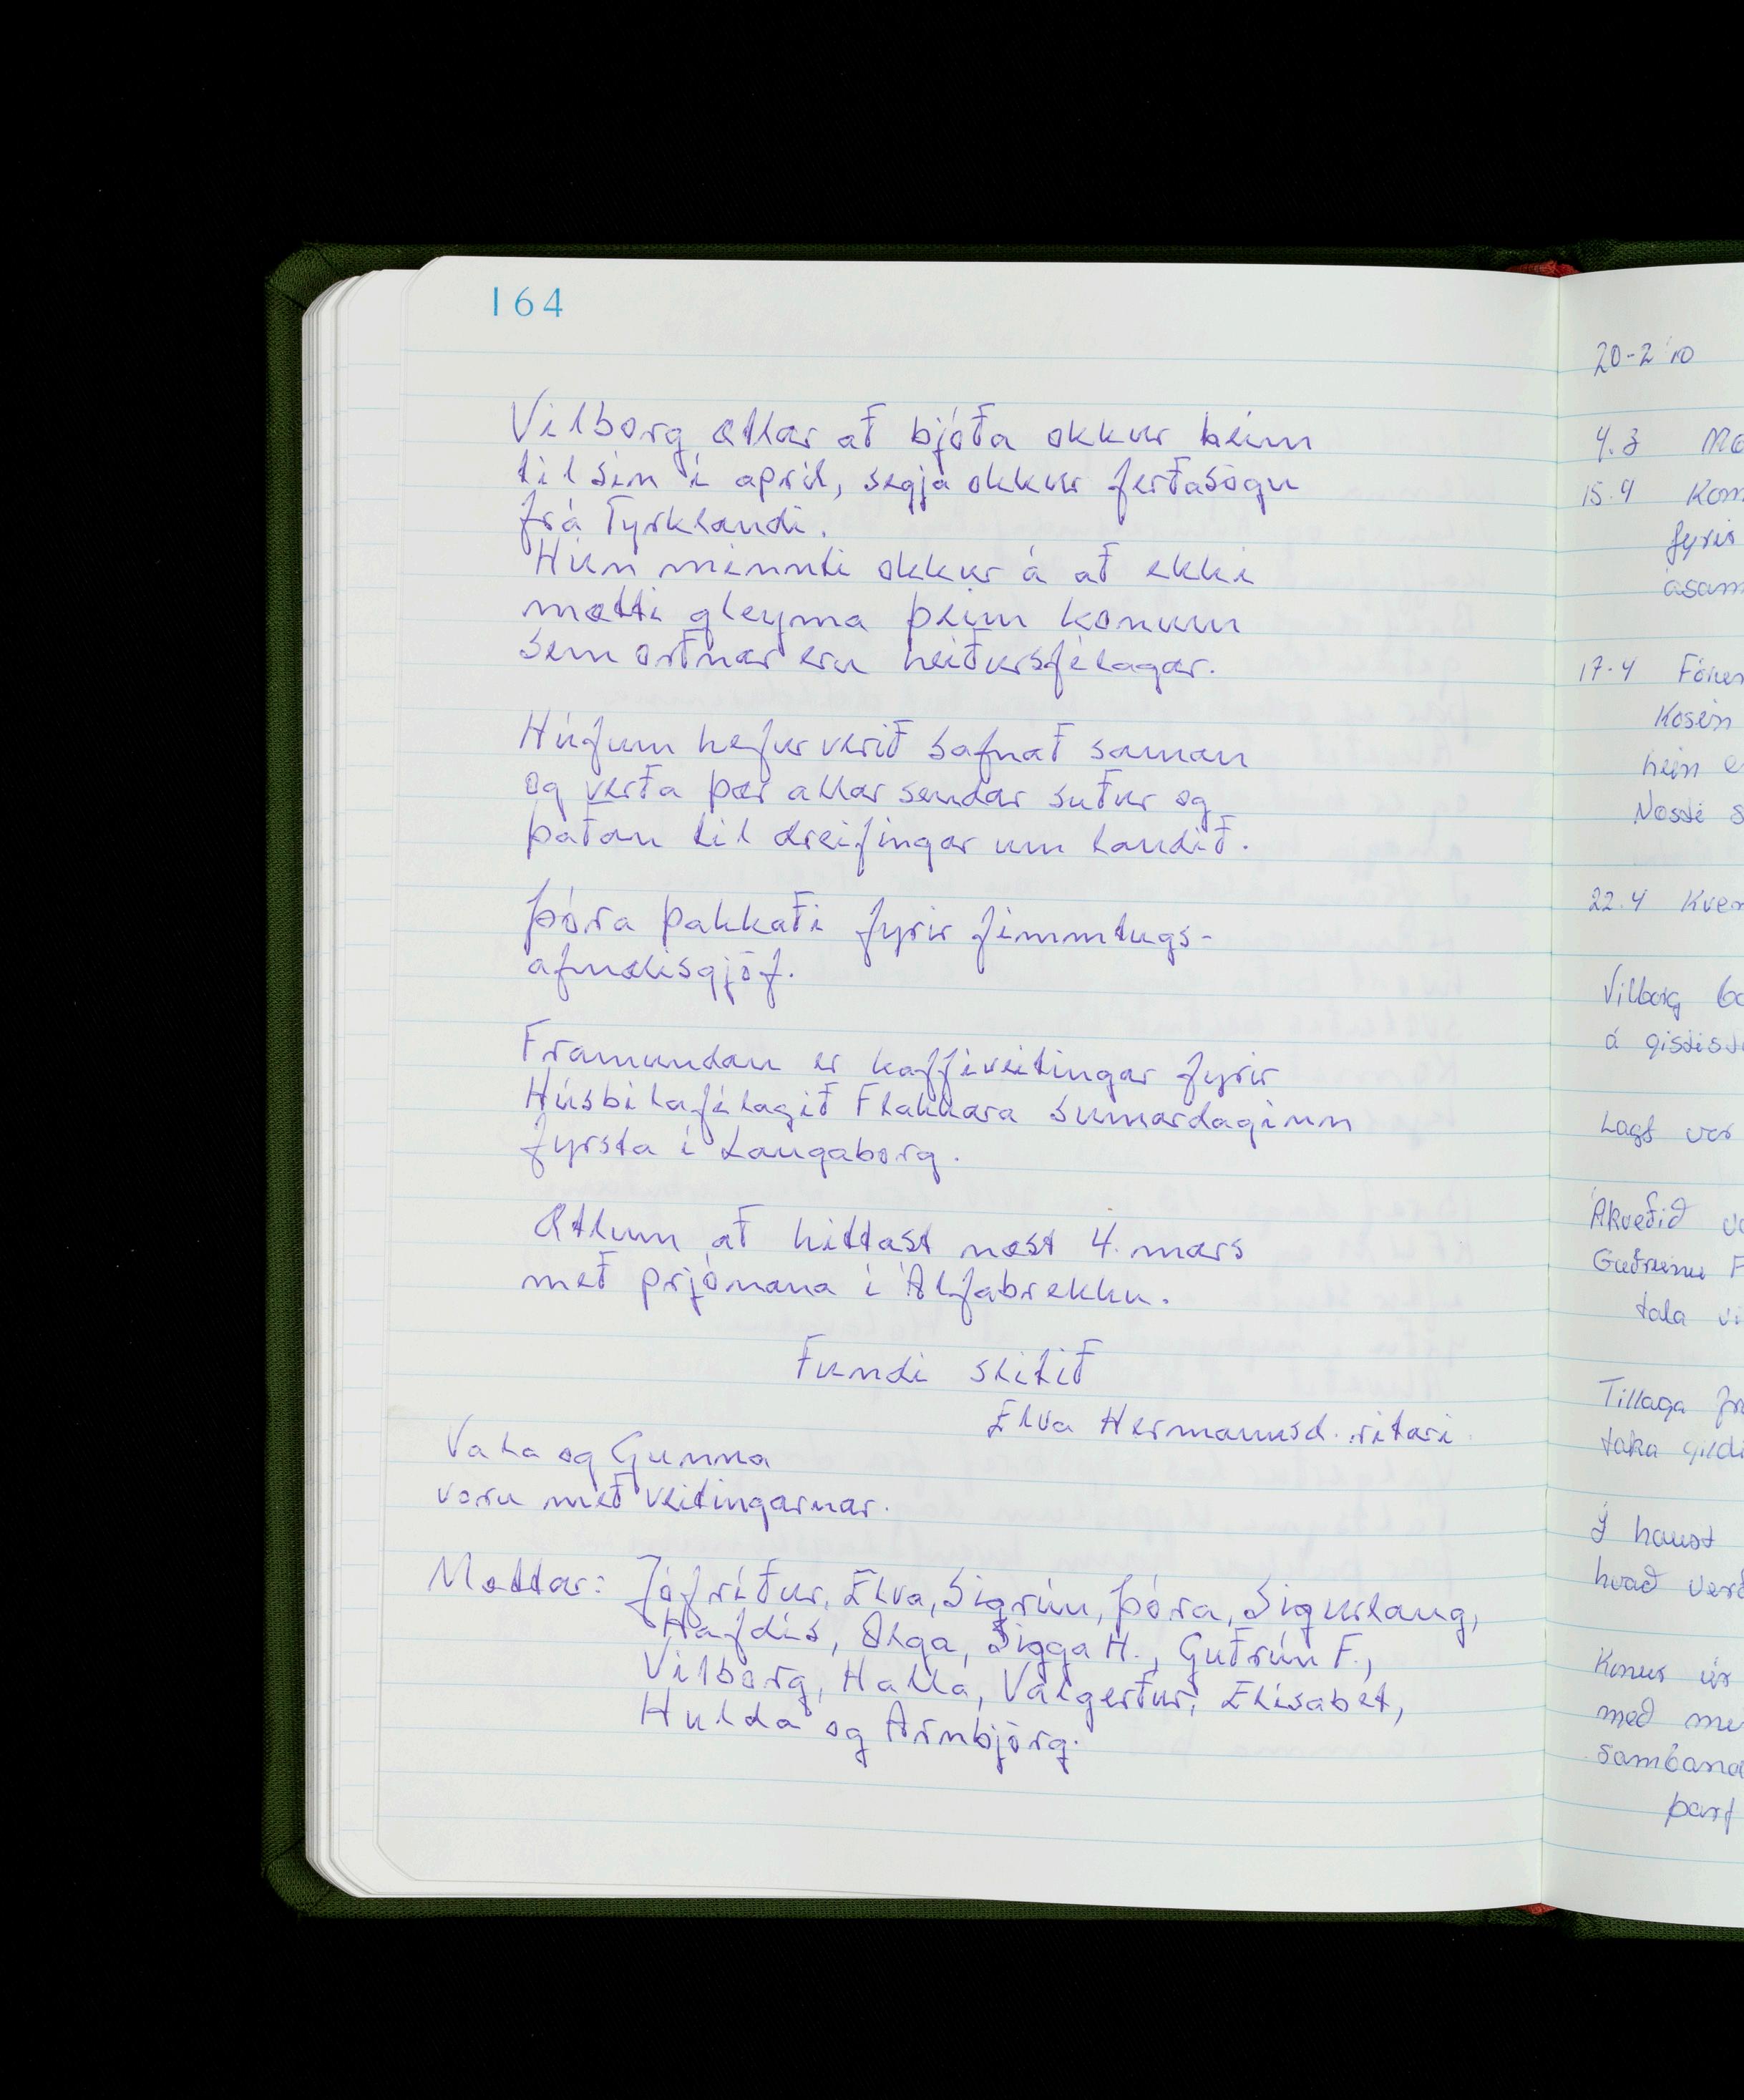 164
Vilborg ætlar að bjóða okkur heim
til sín í apríl, segja okkur ferðasögu
frá Tyrklandi.
Hún minnti okkur á að ekki
mætti gleyma þeim konum
sem orðnar eru heiðursfélagar.
Húfum hefur verið safnað saman
og verða þær allar sendar suður og
þaðan til dreifingar um landið.
Þóra þakkaði fyrir fimmtugs-
afmælisgjöf.
Framundan er kaffiveitingar fyrir
Húsbílafélagið Flakkara sumardaginn
fyrsta í Laugaborg.
Ætlum að hittast næst 4. mars
með prjónana í Álfabrekku.
Fundi slitið
Elva Hermannsd. ritari
Vala og Gunna
voru með veitingarnar.
Mættar: Jófríður, Elva, Sigrún, Þóra, Sigurlaug,
Hafdís, Olga, Sigga H., Guðrún F.,
Vilborg, Halla, Valgerður, Elísabet,
Hulda og Arnbjörg.
20-2 '10
4.3
15.4
fyrir
17.4
Kosin
22.4
Vilborg
á
Lagt var
Ákveðið
Guðrúnu F
tala
Tillaga
taka gildi
Í haust
hvað
Konur úr
með
þarf